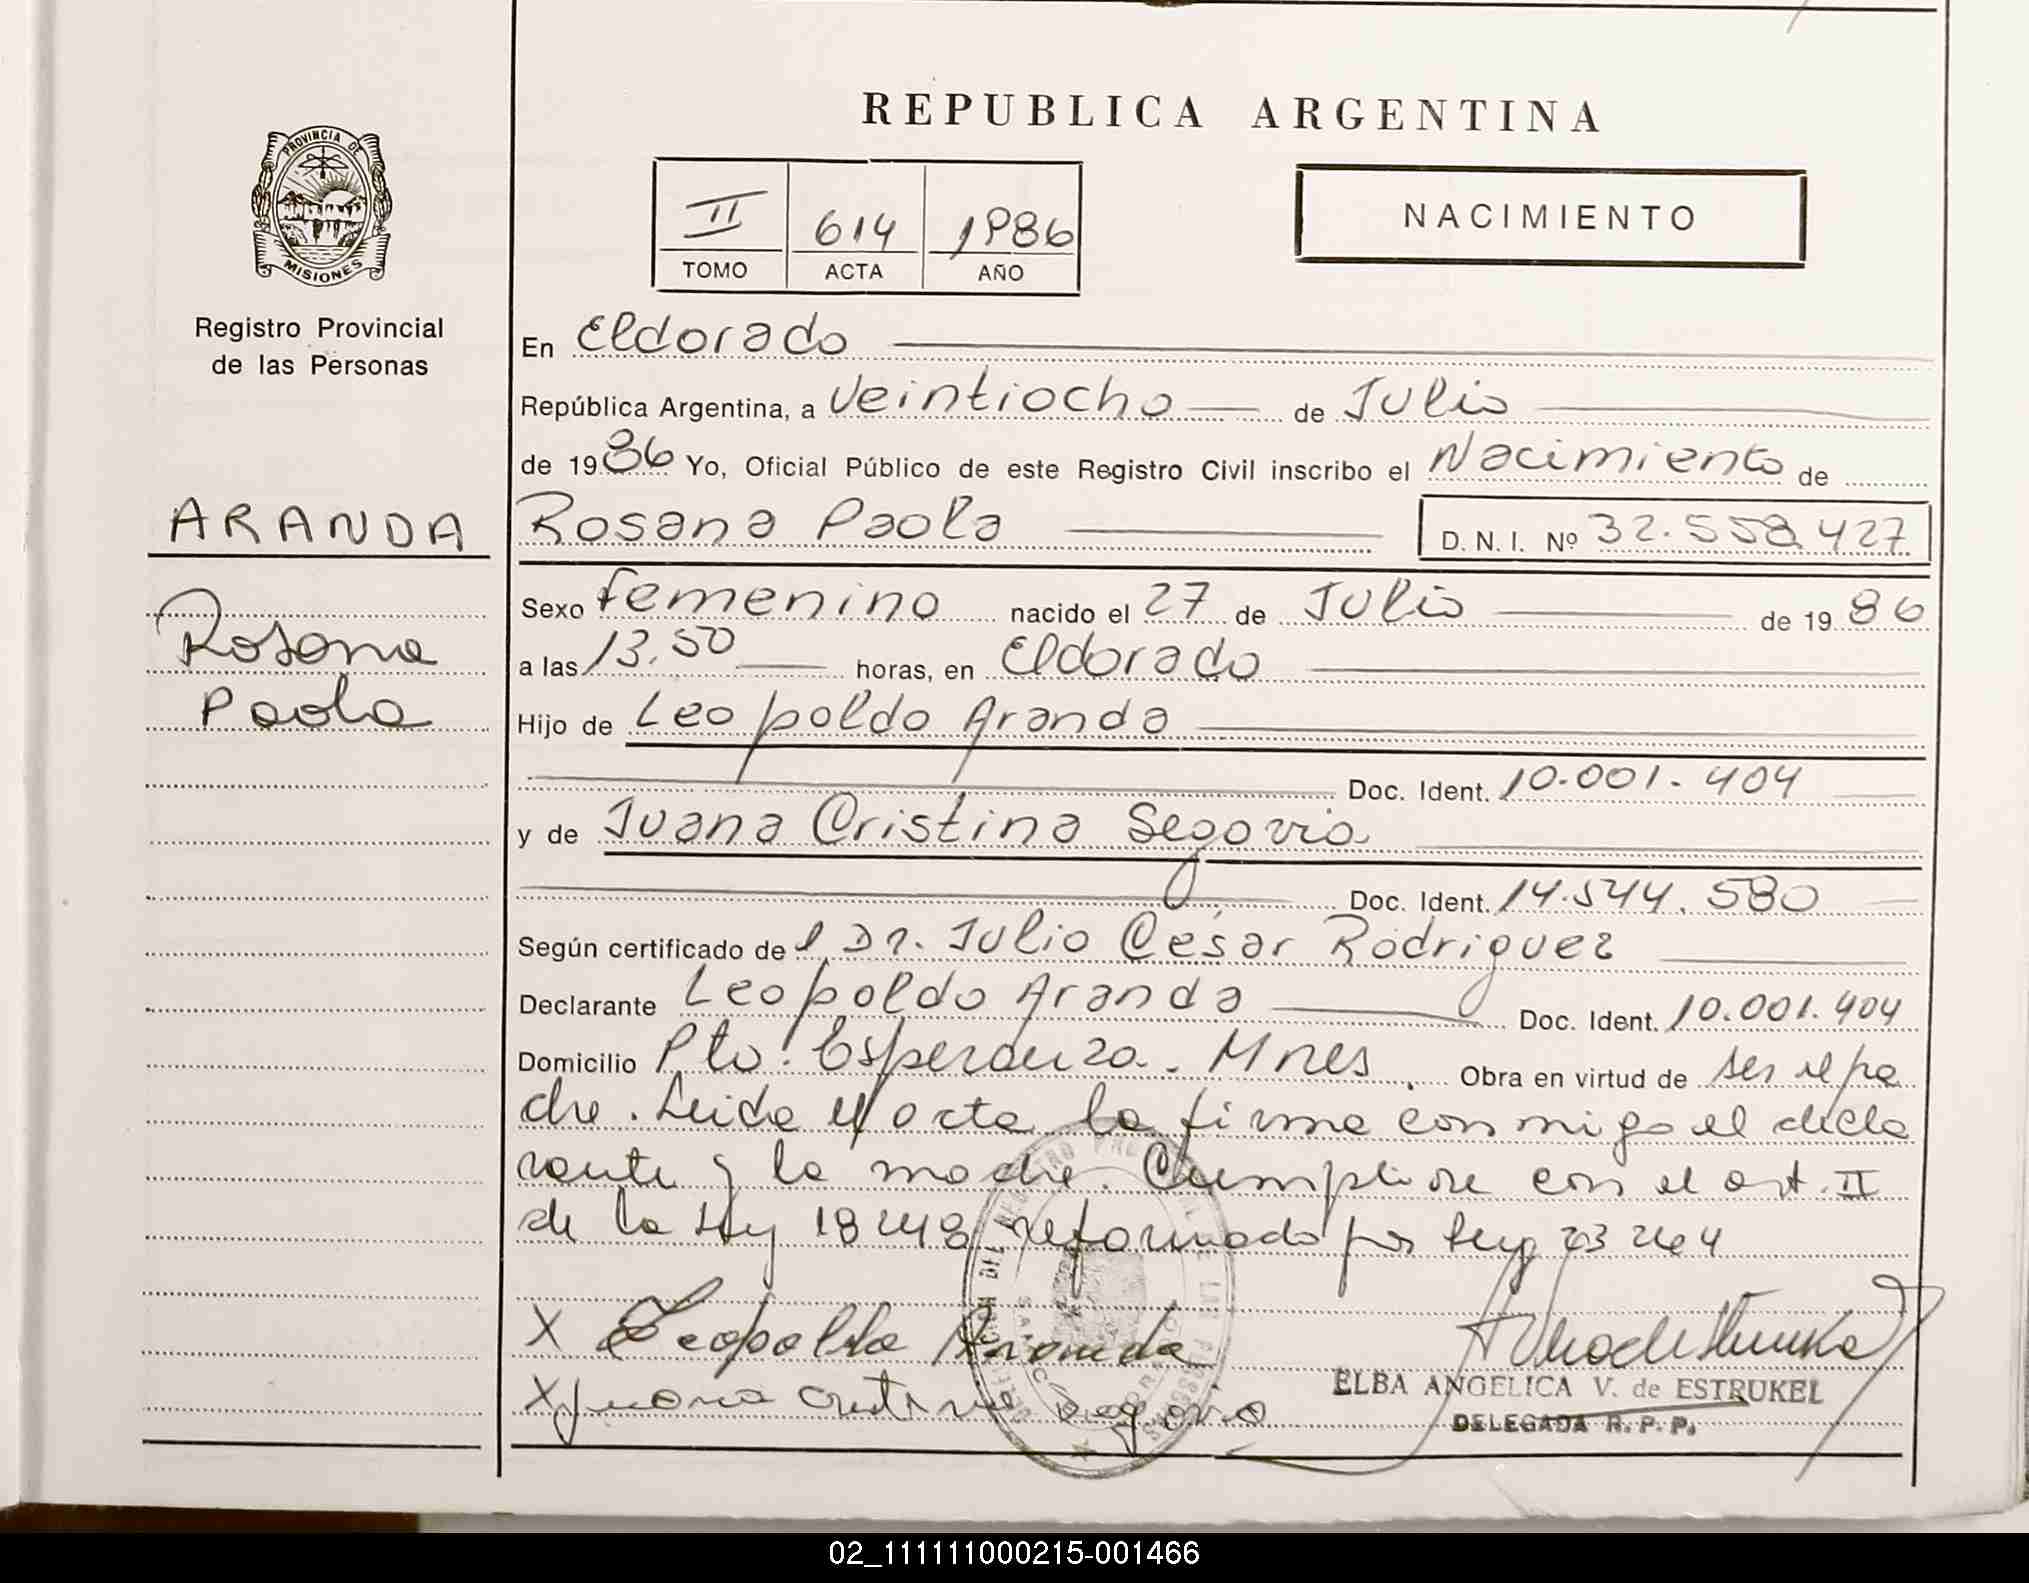 REPUBLICA ARGENTINA
PROVINCIA DE
MISIONES
Registro Provincial
de las Personas
II 614 1986
TOMO ACTA AÑO
NACIMIENTO
En Eldorado
República Argentina, a Veintiocho de Julio
de 1986 Yo, Oficial Público de este Registro Civil inscribo el Nacimiento de
ARANDA
Rosana Paola D. N. I. Nº 32.558.427
Rosana
Paola
Sexo femenino nacido el 27 de Julio de 1986
a las 13,50 horas, en Eldorado
Hijo de Leopoldo Aranda
Doc. Ident. 10.001.404
y de Juana Cristina Segovia
Doc. Ident. 14.544.580
Según certificado del Dr. Julio César Rodriguez
Declarante Leopoldo Aranda Doc. Ident. 10.001.404
Domicilio Pto. Esperanza. Mnes. Obra en virtud de ser el pa
dre. Leida el acta la firma conmigo el decla
rante y la madre. Cumplire con el art. II
de la Ley 18248 reformado por Ley 23264
X Leopoldo Aranda
X Juana Cristina Segovia
ELBA ANGELICA V. de ESTRUKEL
DELEGADA R. P. P.
02_111111000215-001466